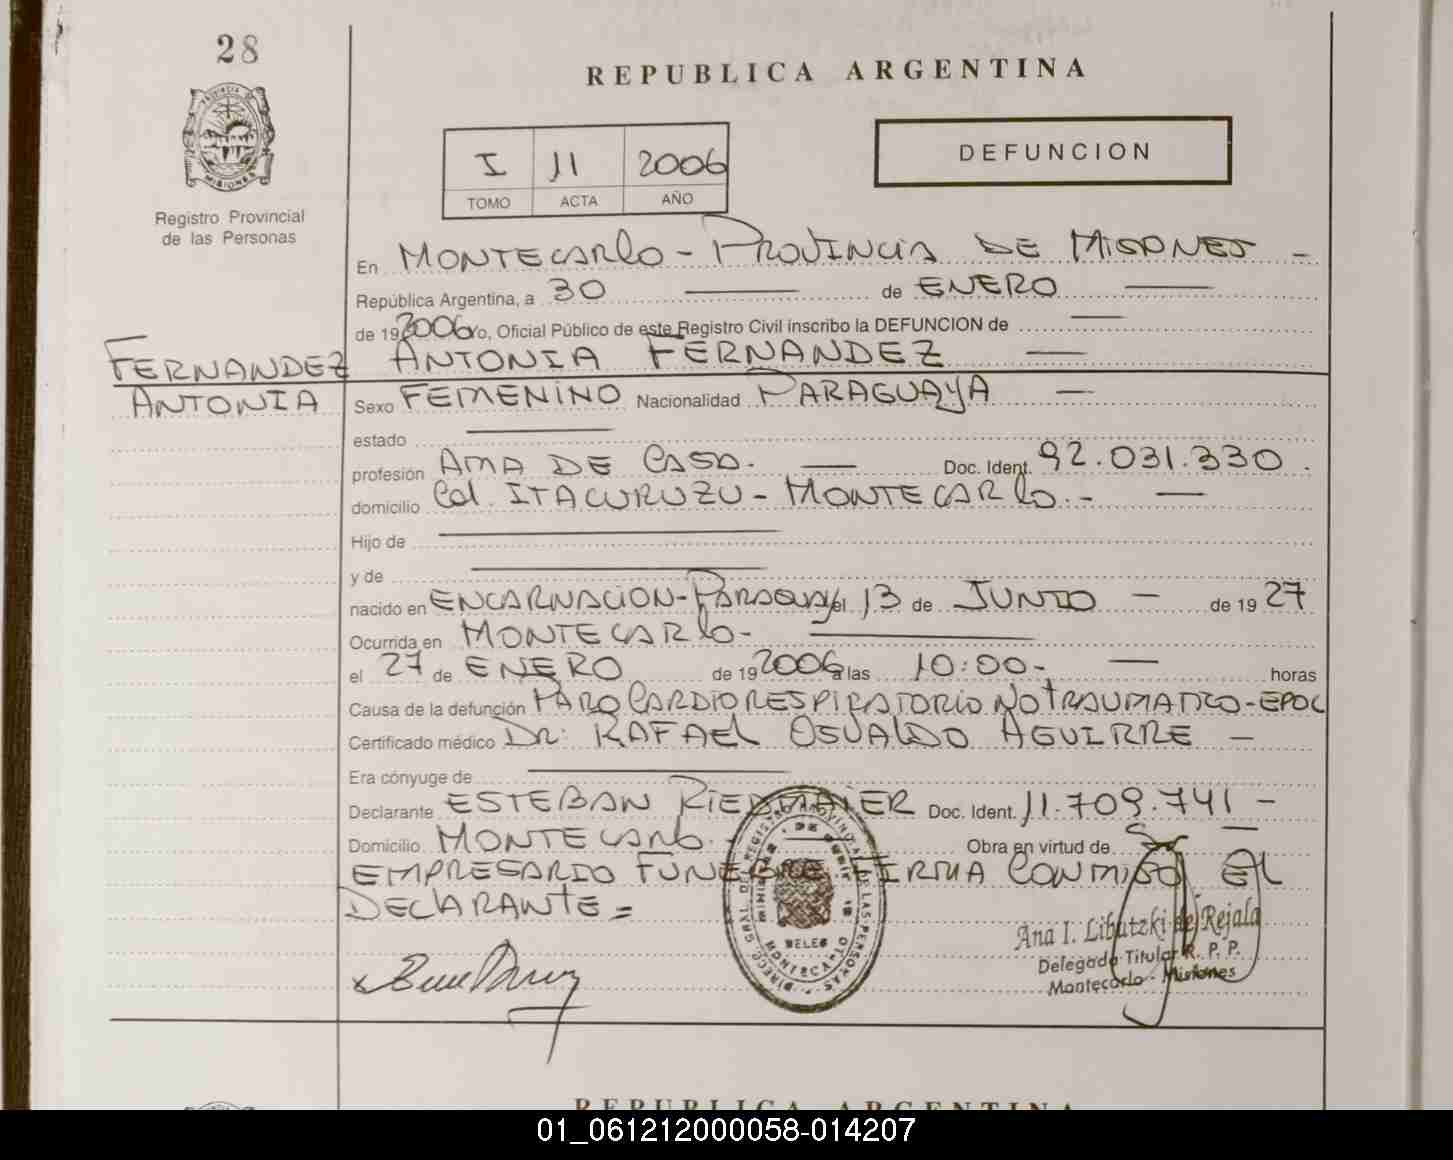 28
REPUBLICA ARGENTINA
PROVINCIA DE
MISIONES
Registro Provincial
de las Personas
I 11 2006
TOMO ACTA AÑO
DEFUNCION
En MONTECARLO - PROVINCIA DE MISIONES -
República Argentina, a 30 de ENERO
de 19 2006 Yo, Oficial Público de este Registro Civil inscribo la DEFUNCION de
FERNANDEZ ANTONIA FERNANDEZ
ANTONIA Sexo FEMENINO Nacionalidad PARAGUAYA
estado
profesión AMA DE CASA. Doc. Ident. 92.031.330.
domicilio Col. ITACURUZU - MONTECARLO.-
Hijo de
y de
nacido en ENCARNACION-PARAGUAY el 13 de JUNIO de 1927
Ocurrida en MONTECARLO-
el 27 de ENERO de 19 2006 a las 10:00- horas
Causa de la defunción PARO CARDIORESPIRATORIO NO TRAUMATICO-EPOC
Certificado médico Dr: RAFAEL OSVALDO AGUIRRE -
Era cónyuge de
Declarante ESTEBAN RIEDMAIER Doc. Ident. 11.709.741 -
Domicilio MONTECARLO. Obra en virtud de Ser
EMPRESARIO FUNEBRE FIRMA CONMIGO EL
DECLARANTE =
Ana I. Libutzki de Rejala
Delegada Titular R. P. P.
Montecarlo - Misiones
REPUBLICA ARGENTINA
01_061212000058-014207